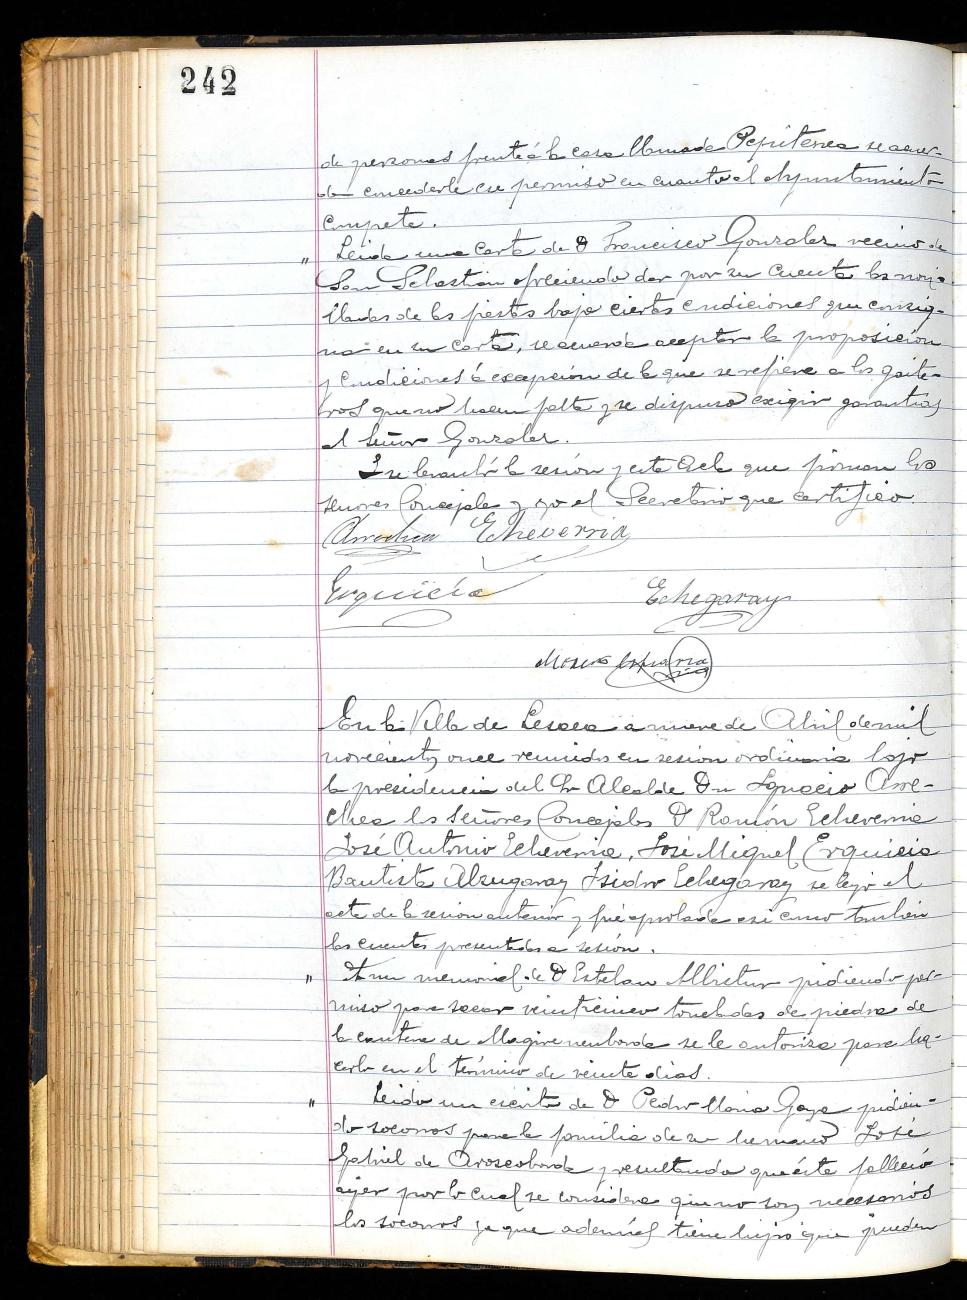 242
de personas frente á la casa llamada Pepiterea se acuer-
da concederle ese permiso en cuanto al Ayuntamiento
compete.
" Leida una carta de D Francisco Gonzalez vecino de
San Sebastian ofreciendo dar por su cuenta las novi-
lladas de las fiestas bajo ciertas condiciones que consig-
na en su carta, se acuerda aceptar la proposición
y condiciones á excepción de la que se refiere a los gaite-
ros que no hacen falta y se dispuso exigir garantias
al Señor Gonzalez.
I se levantó la sesión y esta acta que firman los
señores Concejales y yo el Secretario que certifico
Arrechea Echeverria
Erquicia Echegaray
En la Villa de Lesaca a nueve de Abril de mil
novecientos once reunidos en sesión ordinaria bajo
la presidencia del Sr Alcalde Dn Ignacio Arre-
chea los Señores Concejales D Ramón Echeverria
José Antonio Echeverria, José Miguel Erquicia
Bautista Alzugaray Isidro Echegaray se leyó el
acta de la sesión anterior y fué aprobada asi como tambien
las cuentas presentadas a sesión.
" A un memorial de D Esteban Albistur pidiendo per-
miso para sacar veinticinco toneladas de piedra de
la cantera de Magirenenborda se le autoriza para ha-
cerlo en el término de veinte dias.
" Leido un escrito de D Pedro Maria Goya pidien-
do socorros para la familia de su hermano José
Gabriel de Aroscoborda y resultando que éste falleció
ayer por lo cual se considera que no son necesarios
los socorros ya que además tiene hijos que pueden